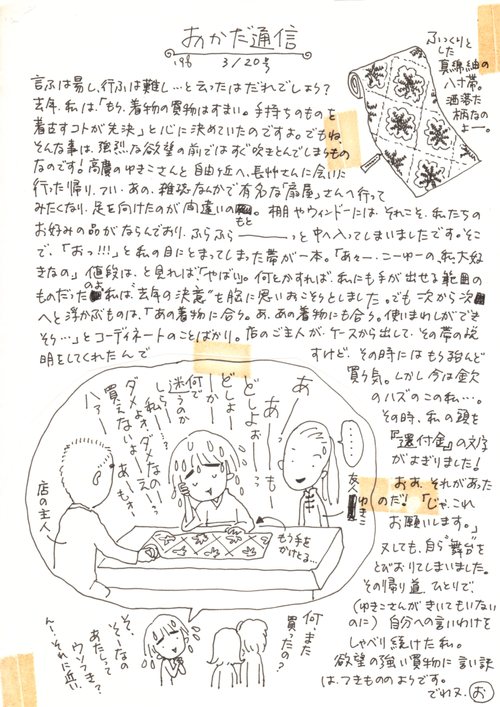 あかだ通信
'96 3/20号
ふっくりと
した
真綿紬の
八寸帯。
洒落た
柄なの
よー。
言ふは易し、行ふは難し…と云ったはだれでしょう?
去年、私は、「もう、着物の買物はすまい。手持ちのものを
着古すコトが先決」と心に決めていたのですよ。でもね、
そんな事は、強烈な欲望の前ではすぐ吹きとんでしまうもの
なのです!高慶のゆきこさんと自由ヶ丘へ、長艸さんに会いに
行った帰り、つい、あの、雑誌なんかで有名な「扇屋」さんへ行って
みたくなり、足を向けたのが間違いのもと。棚やウィンドーには、それこそ、私たちの
お好みの品がならんでおり、ふらふら────っと中へ入ってしまいましたです。そこ
で、「おっ!!!」と私の目にとまってしまった帯が一本。「あゝー、こーゆーの、私、大好
きなの」値段は、と見れば「やばい」。何とかすれば、私にも手が出せる範囲の
ものだったのよ 私は"去年の決意"を脳に思いおこそうとしました。でも次から次
へと浮かぶものは、「あの着物に合う。あ、あの着物にも合う。使いまわしができ
そう…」とコーディネートのことばかり。店のご主人が、ケースから出して、その帯の説
明をしてくれたんで
すけど、その時にはもう殆んど
買う気。しかし今は金欠
のハズのこの私…。
その時、私の頭を
『還付金』の文字
がよぎりました!
おお、それがあった
のだ!「じゃ、これ
お願いします。」
又しても、自ら"舞台"を
とびおりてしまいました。
その帰り道、ひとりで、
(ゆきこさんがきいてもいない
のに)自分への言いわけを
しゃべり続けた私。
欲望の強い買物に言い訳
は、つきもののようです。
でわ又。お
……
あ
あーっ
どしよおー
どしょー
かー
何で
迷うのか
しら…私…
ダメよォ、ダメなのー
買えないよー えー?
ハァー あーもォ、
店の主人
友人
ゆきこ
もう手を
かけとる…
何、また
買ったの?
そ、
そんなの
あたしって
ウソつき?
んー、それに近い